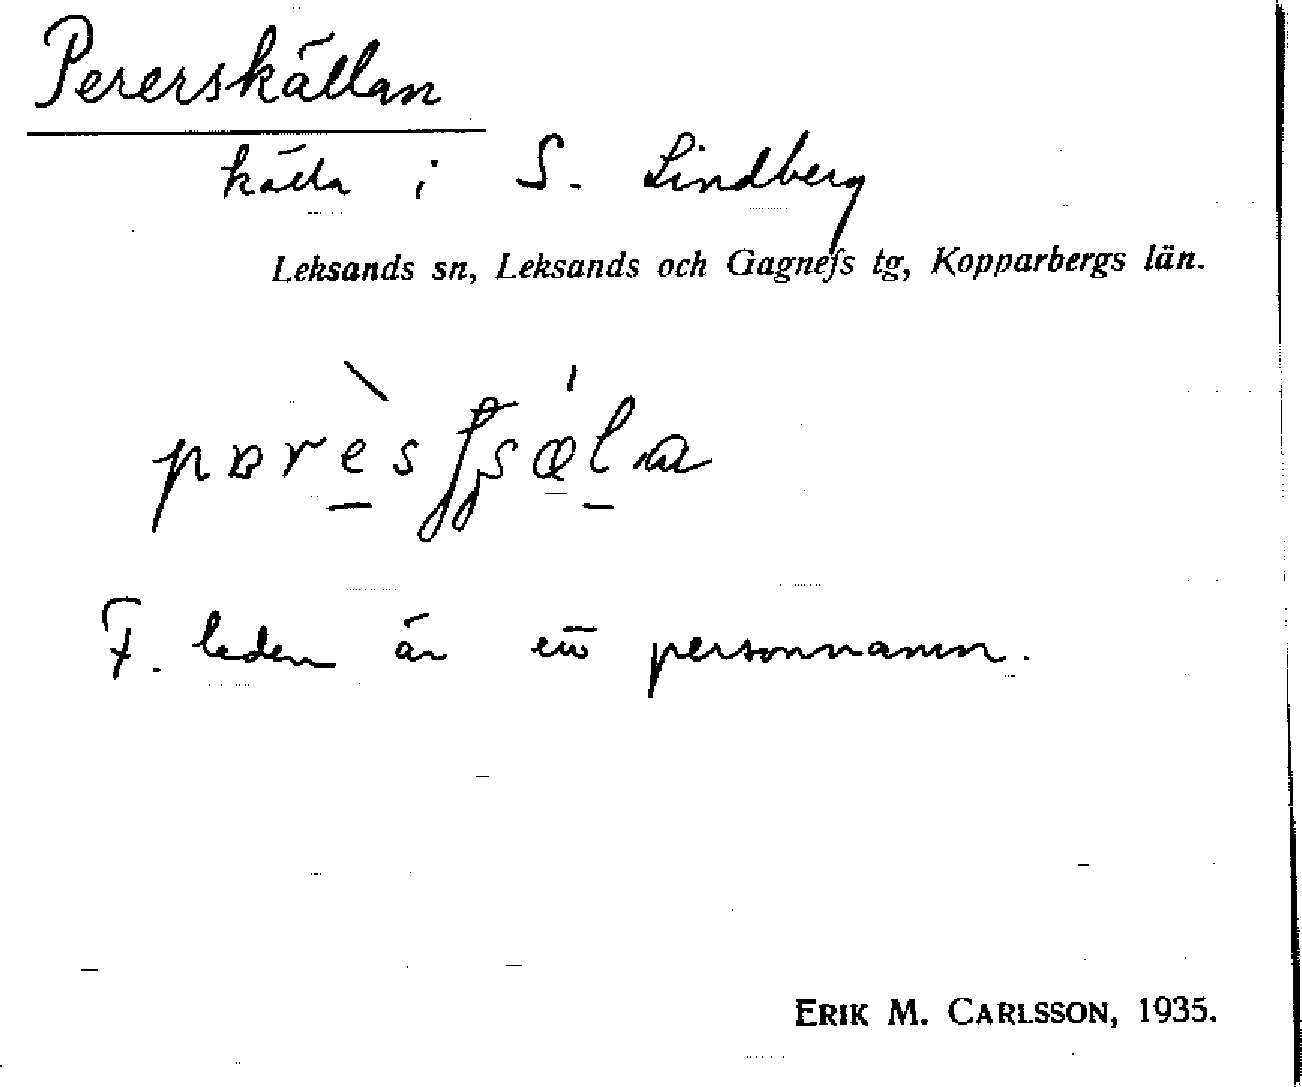 Pererskällan
källa i S. Lindberg
Leksands sn, Leksands och Gagnefs tg, Kopparbergs län.
F. leden är ett personnamn.
ERIK M. CARLSSON, 1935.